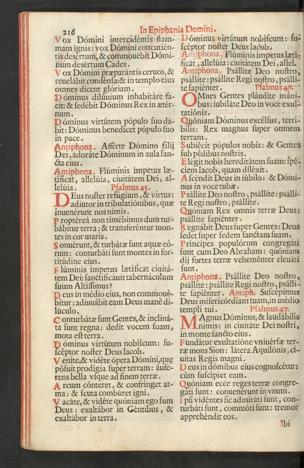 216
In Epiphania Domini.
Vox Dómini intercidéntis flam-
mam ignis: vox Dómini concutién-
tis desértum, & commovébit Dómi-
nus desértum Cades.
Vox Dómini præparántis cervos, &
revelábit condénsa: & in templo eius
omnes dicent glóriam.
Dóminus dilúvium inhabitáre fa-
cit: & sedébit Dóminus Rex in ætér-
num.
Dóminus virtútem pópulo suo da-
bit: Dóminus benedícet pópulo suo
in pace.
Antiphona. Afférte Dómino fílij
Dei, adoráte Dóminum in aula san-
cta eius.
Antiphona. Flúminis ímpetus læ-
tíficat, allelúia, civitátem Dei, al-
lelúia. Psalmus 45.
Deus noster refúgium, & virtus:
adiútor in tribulatiónibus, quæ
invenérunt nos nimis.
Proptérea non timébimus dum tur-
bábitur terra: & transferéntur mon-
tes in cor maris.
Sonuérunt, & turbátæ sunt aquæ eó-
rum: conturbáti sunt montes in for-
titúdine eius.
Flúminis ímpetus lætíficat civitá-
tem Dei: sanctificávit tabernáculum
suum Altíssimus.
Deus in médio eius, non commové-
bitur: adiuvábit eam Deus mane di-
lúculo.
Conturbátæ sunt Gentes, & incliná-
ta sunt regna: dedit vocem suam,
mota est terra.
Dóminus virtútum nobíscum: su-
scéptor noster Deus Iacob.
Veníte, & vidéte ópera Dómini, quæ
pósuit prodígia super terram: áufe-
rens bella usque ad finem terræ.
Arcum cónteret, & confrínget ar-
ma: & scuta combúret igni.
Vacáte, & vidéte quóniam ego sum
Deus: exaltábor in Géntibus, &
exaltábor in terra.
Dóminus virtútum nobíscum: su-
scéptor noster Deus Iacob.
Antiphona. Flúminis ímpetus lætí-
ficat, allelúia: civitátem Dei, allel.
Antiphona. Psállite Deo nostro,
psállite: psállite Regi nostro, psálli-
te sapiénter. Psalmus 46.
Omnes Gentes pláudite máni-
bus: iubiláte Deo in voce exul-
tatiónis.
Quóniam Dóminus excélsus, terrí-
bilis: Rex magnus super omnem
terram.
Subiécit pópulos nobis: & Gentes
sub pédibus nostris.
Elégit nobis hereditátem suam: spé-
ciem Iacob, quam diléxit.
Ascéndit Deus in iúbilo: & Dómi-
nus in voce tubæ.
Psállite Deo nostro, psállite: psálli-
te Regi nostro, psállite.
Quóniam Rex omnis terræ Deus:
psállite sapiénter.
Regnábit Deus super Gentes: Deus
sedet super sedem sanctam suam.
Príncipes populórum congregáti
sunt cum Deo Abraham: quóniam
dij fortes terræ veheménter eleváti
sunt.
Antiphona. Psállite Deo nostro,
psállite: psállite Regi nostro, psálli-
te sapiénter. Antiph. Suscépimus
Deus misericórdiam tuam, in médio
templi tui. Psalmus 47.
Magnus Dóminus, & laudábilis
nimis: in civitáte Dei nostri,
in monte sancto eius.
Fundátur exultatióne univérsæ ter-
ræ mons Sion: látera Aquilónis, ci-
vitas Regis magni.
Deus in dómibus eius cognoscétur:
cùm suscípiet eam.
Quóniam ecce reges terræ congre-
gáti sunt: convenérunt in unum.
Ipsi vidéntes sic admiráti sunt, con-
turbáti sunt, commóti sunt: tremor
apprehéndit eos.
Ibi